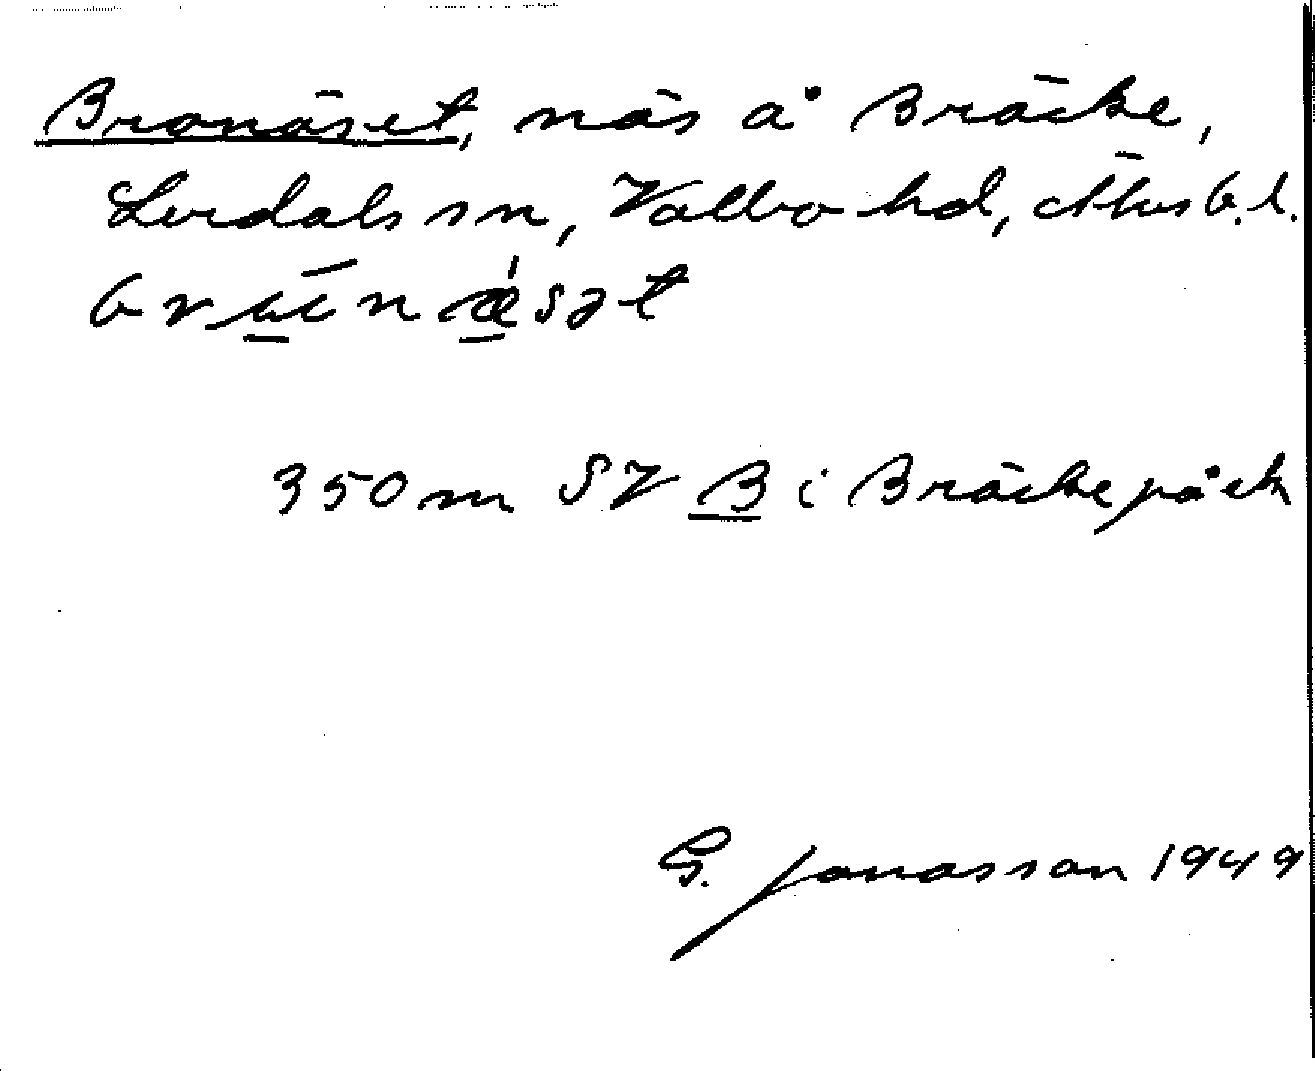 Bronäset, näs å Bräcke,
Lerdals sn, Valbo hd, Älvsb.l.
350 m SV B i Bräcke på ek
G. Jonasson 1949